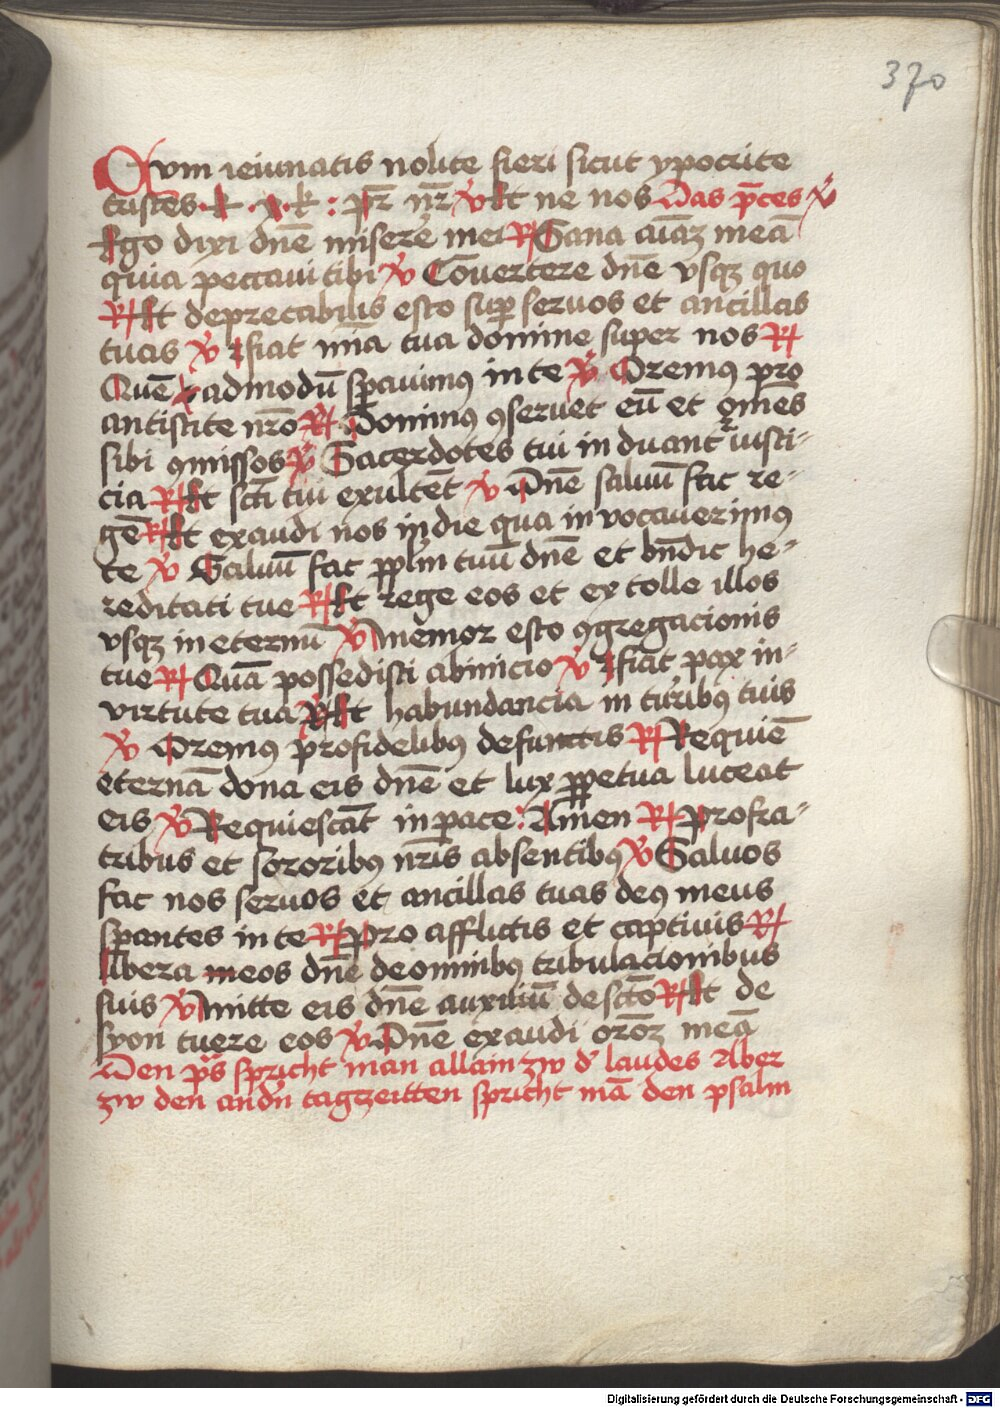 370
Cvm ieiunatis nolite fieri sicut ypocrite
tristes · k · x · k : pr̄ nr̄ ℣ Et ne nos Das p̄ces ℣
Ego dixi dn̄e miserē mei ℟ Sana aīaz meā
quia peccaui tibi ℣ Cōuertere dn̄e vsqz quo
℟ Et deprecabilis esto sup̄ seruos et ancillas
tuas ℣ fiat mīa tua domine super nos ℟
Quē admodū sp̄auimꝯ in te ℣ Oremꝯ pro
antistite nr̄o ℟ Dominꝯ ꝯseruet eū et om̄es
sibi ꝯmissos ℣ Sacerdotes tui in duant iusti-
cia ℟ Et sc̄ti tui exultēt ℣ Dn̄e saluū fac re-
gē ℟ Et exaudi nos in die qua in vocauerimꝯ
te ℣ Saluū fac pplm̄ tuū dn̄e et bn̄dic he-
reditati tue ℟ Et rege eos et ex tolle illos
vsqz in eternū ℣ memor esto ꝯgregacionis
tue ℟ Quā possedisti abinicio ℣ fiat pax in-
virtute tua ℟ Et habundancia in turībꝯ tuis
℣ Oremꝯ profidelibꝯ defunctis ℟ Requiē
eternā dona eis dn̄e et lux ppetua luceat
eis ℣ Requiescāt in pace : Amen ℟ profra-
tribus et sororibꝯ nr̄is absentibꝯ ℣ Saluos
fac nos seruos et ancillas tuas deꝯ meus
sp̄antes in te ℟ pro afflictis et captiuis ℟
libera meos dn̄e deominibꝯ tribulacionibus
suis ℣ mitte eis dn̄e auxiliū de sc̄to ℟ Et de
syon tuere eos ℣ Dn̄e exaudi orōz meā
Den p̄s spricht man allain zw d' laudes Aber
zw den andn̄ tagzeitten spricht mā den psalm
Digitalisierung gefördert durch die Deutsche Forschungsgemeinschaft - DFG